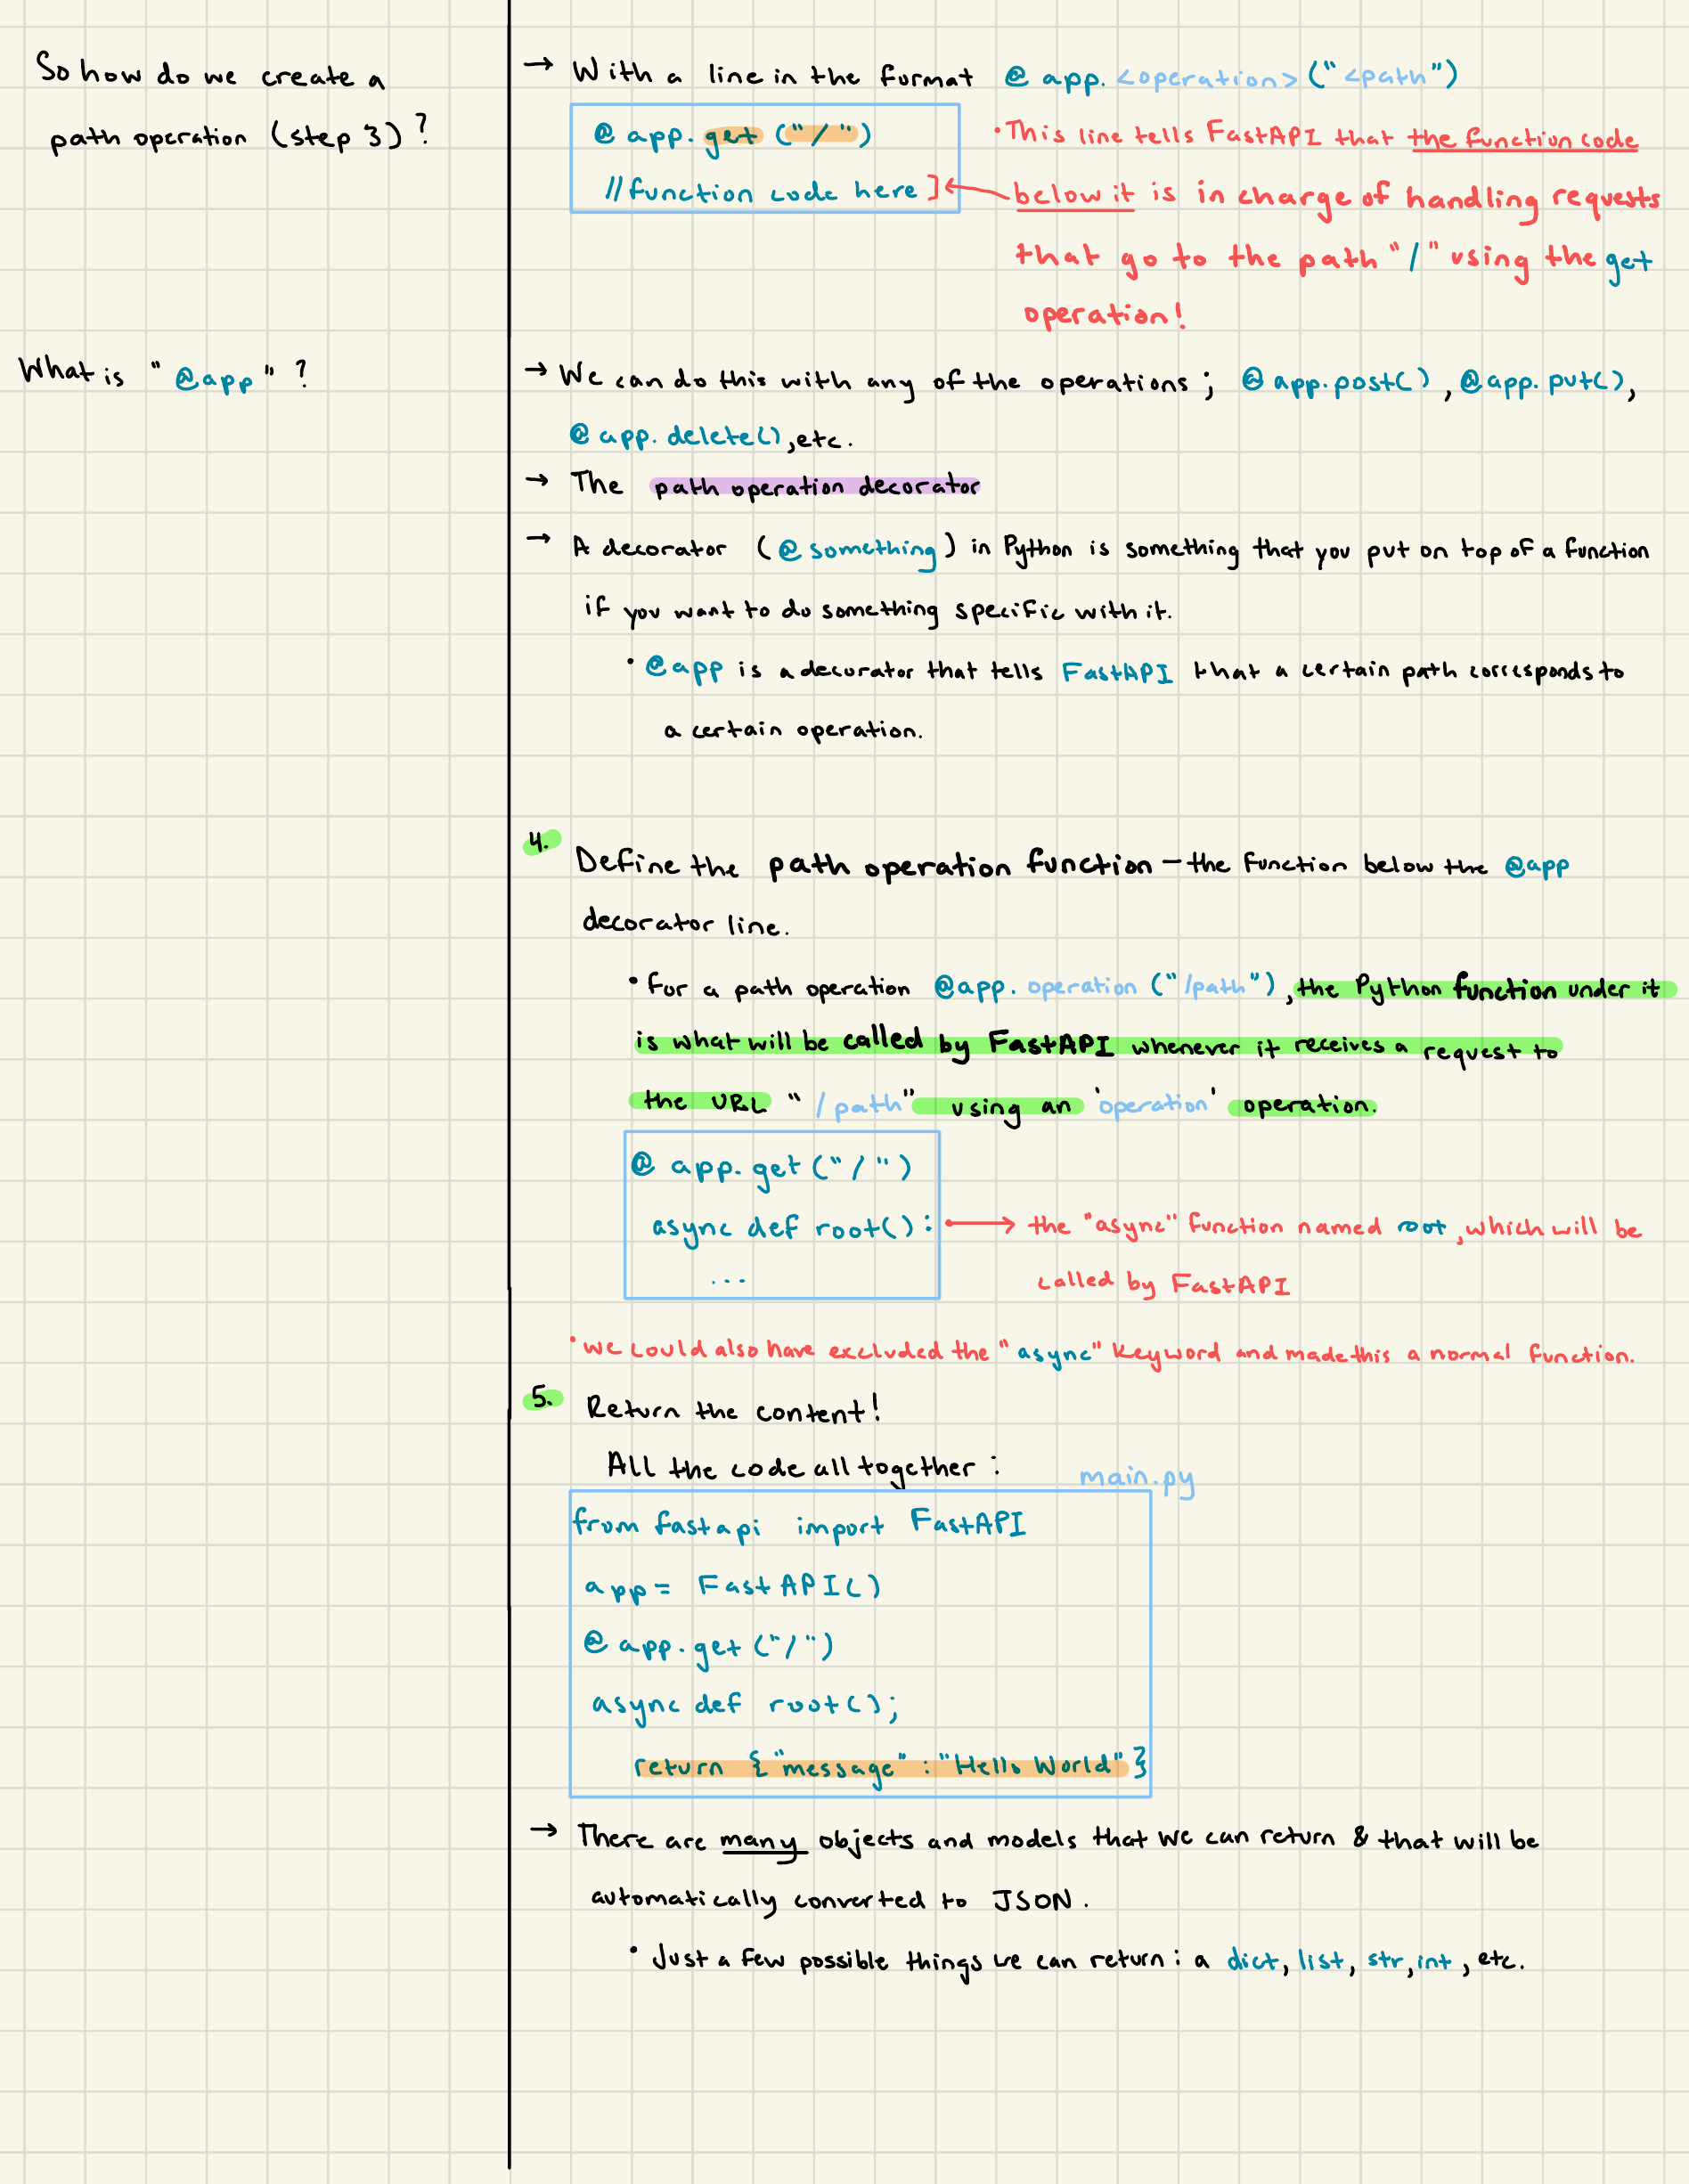 So how do we create a
path operation (step 3)?
→ With a line in the format @ app. <operation> ("<path")
@ app. get ("/")
//function code here ]
• This line tells FastAPI that the function code
below it is in charge of handling requests
that go to the path "/" using the get
operation!
What is "@app"?
→ We can do this with any of the operations; @ app.post(), @app.put(),
@ app. delete(), etc.
→ The path operation decorator
→ A decorator (@ something) in Python is something that you put on top of a function
if you want to do something specific with it.
• @app is a decorator that tells FastAPI that a certain path corresponds to
a certain operation.
4. Define the path operation function — the function below the @app
decorator line.
• For a path operation @app. operation ("/path"), the Python function under it
is what will be called by FastAPI whenever it receives a request to
the URL "/path" using an 'operation' operation.
@ app. get ("/")
async def root():
...
→ the "async" function named root, which will be
called by FastAPI
• we could also have excluded the "async" keyword and made this a normal function.
5. Return the content!
All the code all together:
main.py
from fastapi import FastAPI
app = FastAPI()
@ app. get ("/")
async def root();
return {"message" : "Hello World"}
→ There are many objects and models that we can return & that will be
automatically converted to JSON.
• Just a few possible things we can return: a dict, list, str, int, etc.